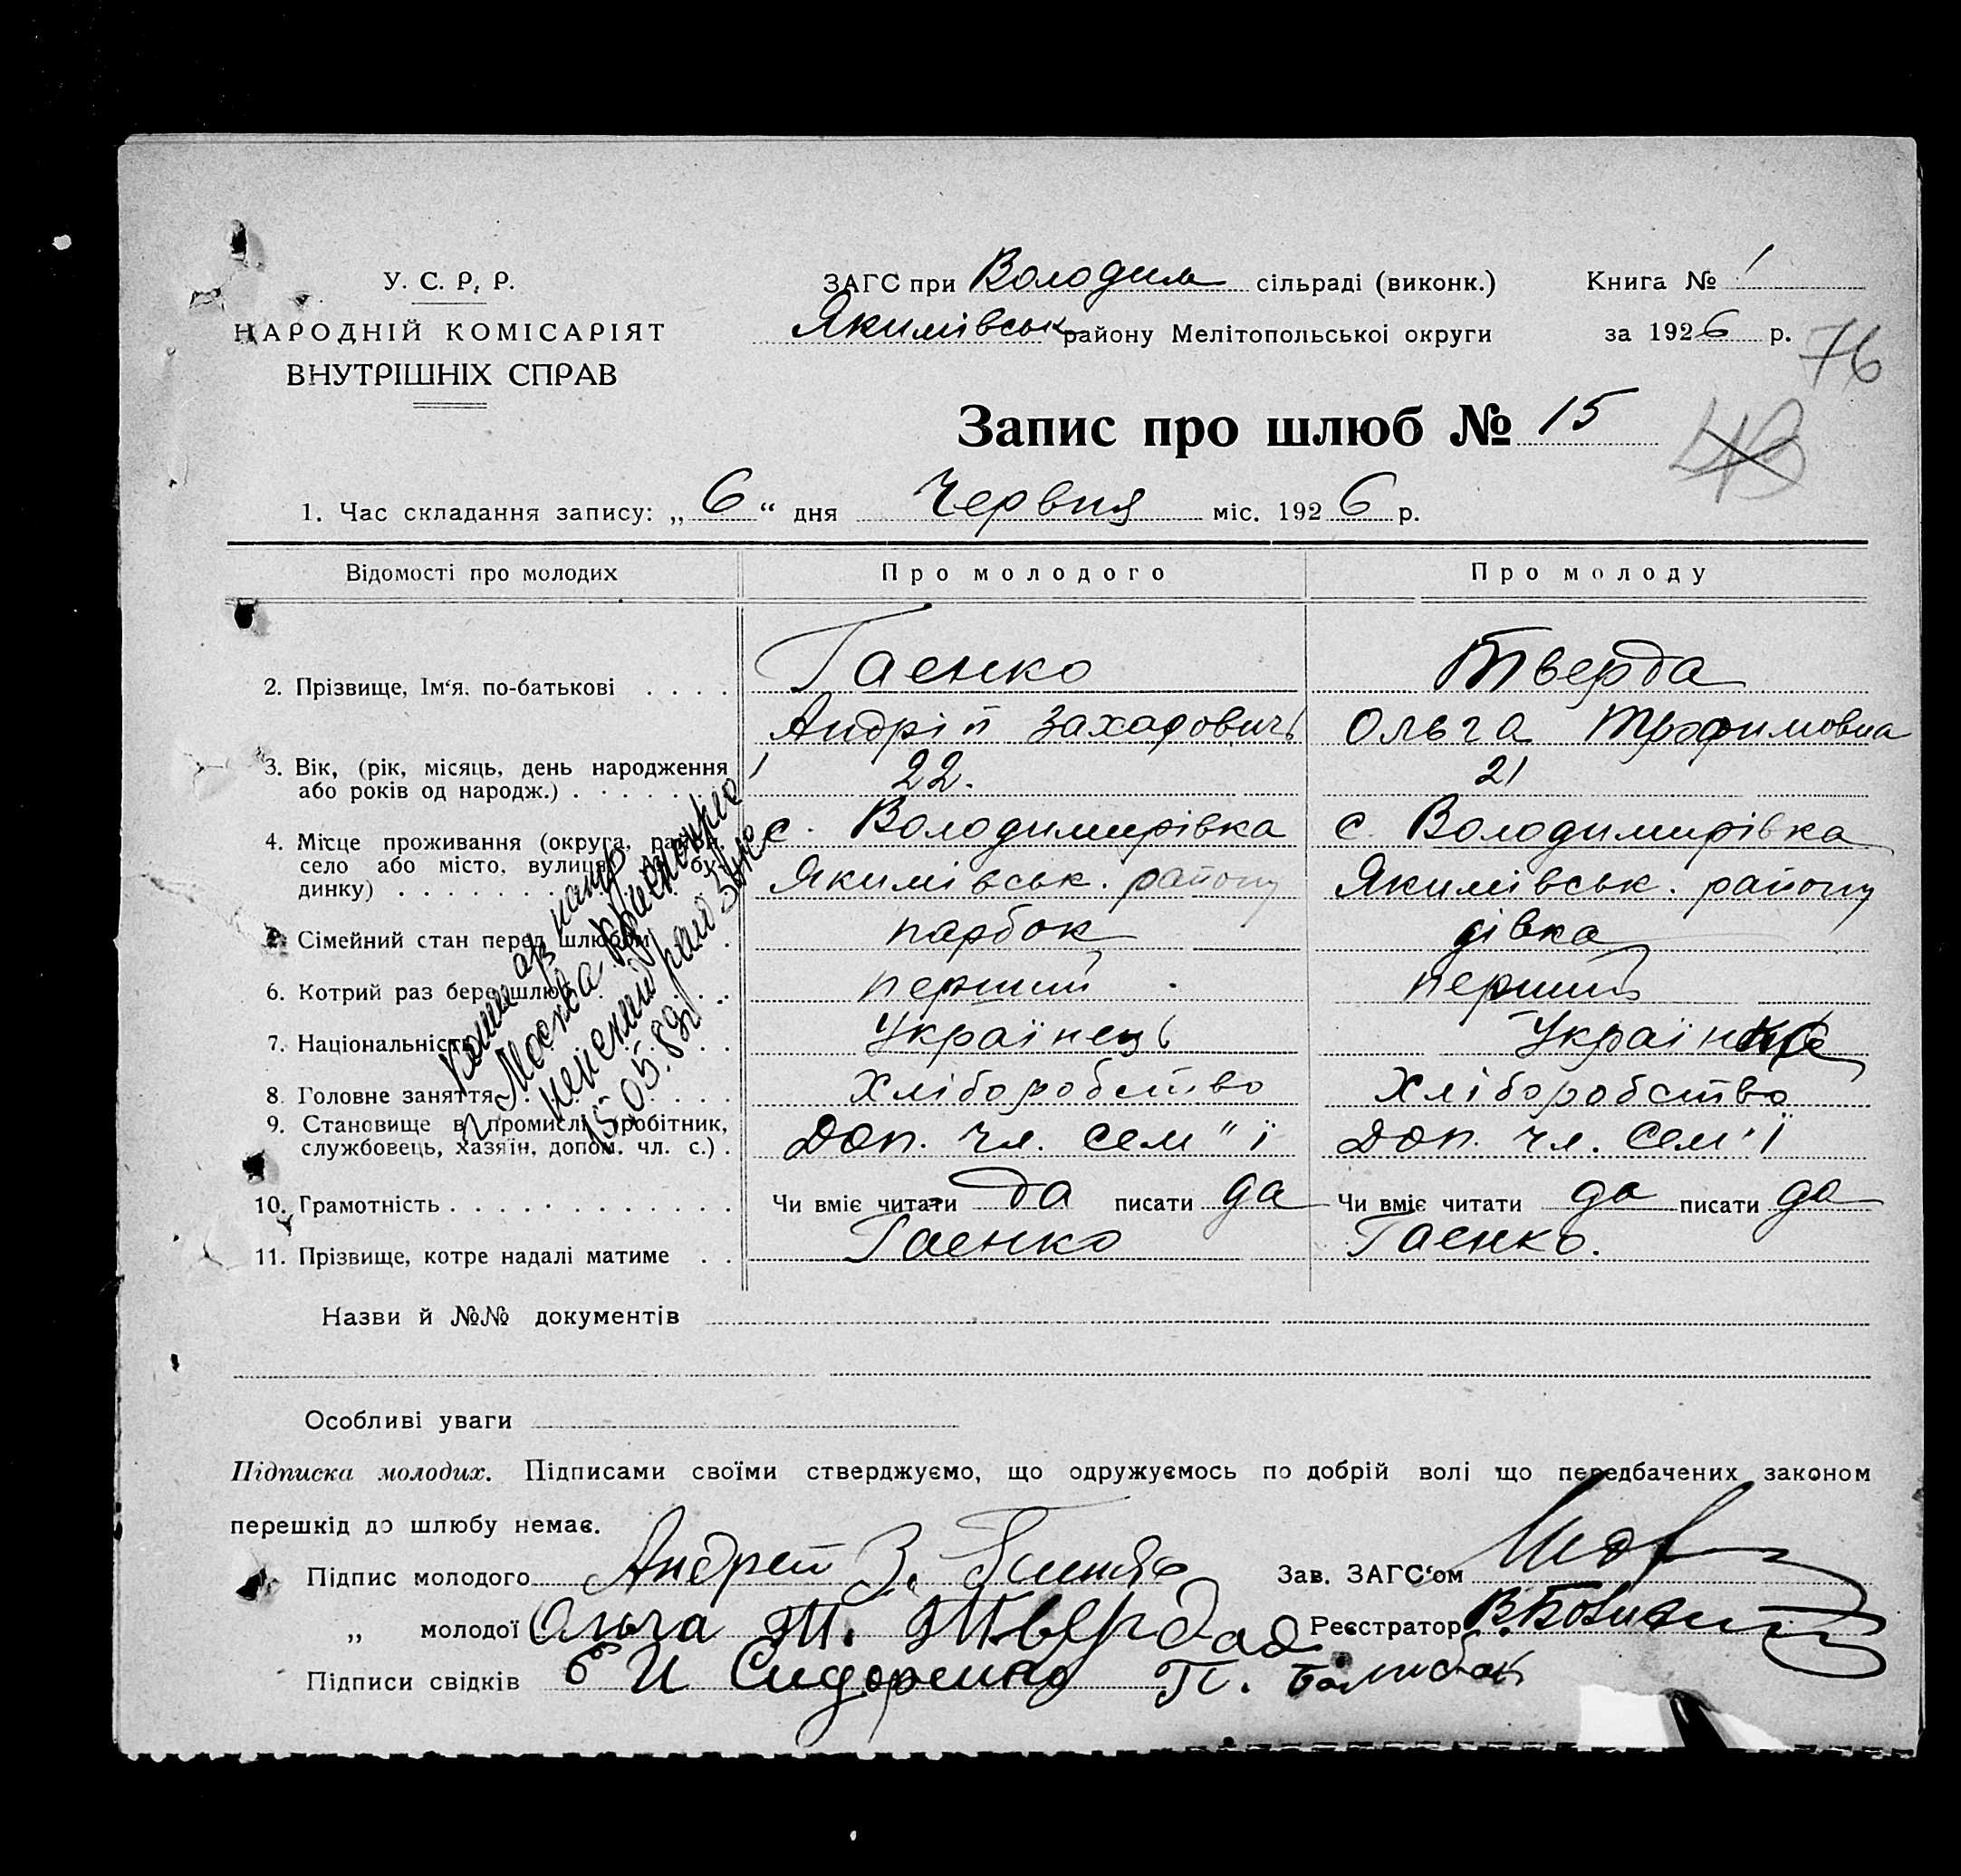 У. С. Р. Р.
НАРОДНІЙ КОМІСАРІЯТ
ВНУТРІШНІХ СПРАВ
ЗАГС при Володим сільраді (виконк.)
Якимівськ району Мелітопольської округи
Книга № 1
за 1926 р.
76
43
Запис про шлюб № 15
1. Час складання запису: „ 6 “ дня Червня міс. 1926 р.
Відомості про молодих Про молодого Про молоду
2. Прізвище, Ім‘я, по-батькові . . . . Гаенко Тверда
Андрій Захарович Ольга Трофимовна
3. Вік, (рік, місяць, день народження
або років од народж.) . . . . . . 22. 21
4. Місце проживання (округа, район, с. Володимирівка с. Володимирівка
село або місто, вулиця, бу-
динку) . . . . . . . Якимівськ. району Якимівськ. району
5. Сімейний стан перед шлюбом . парбок дівка
6. Котрий раз бере шлюб . . . . перший перший
7. Національність . . Українець Українка
8. Головне заняття . . . . Хліборобство Хліборобство
9. Становище в промислі (робітник,
службовець, хазяїн, допом. чл. с.) . Доп. чл. сем"ї Доп. чл. сем'ї
10. Грамотність . . . . . . . . . . . . Чи вміє читати да писати да Чи вміє читати да писати да
11. Прізвище, котре надалі матиме . . Гаенко Гаенко.
15.05.89г
Назви й №№ документів
Особливі уваги
Підписка молодих. Підписами своїми стверджуємо, що одружуємось по добрій волі що передбачених законом
перешкід до шлюбу немає.
Підпис молодого Андрей З. Гаенко Зав. ЗАГС‘ом
„ молодої Ольга Т. Твердая Реєстратор
Підписи свідків И Сидоренко П.